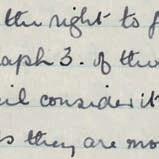 the right to f
aph 3. of the
il consider it
s they are mo